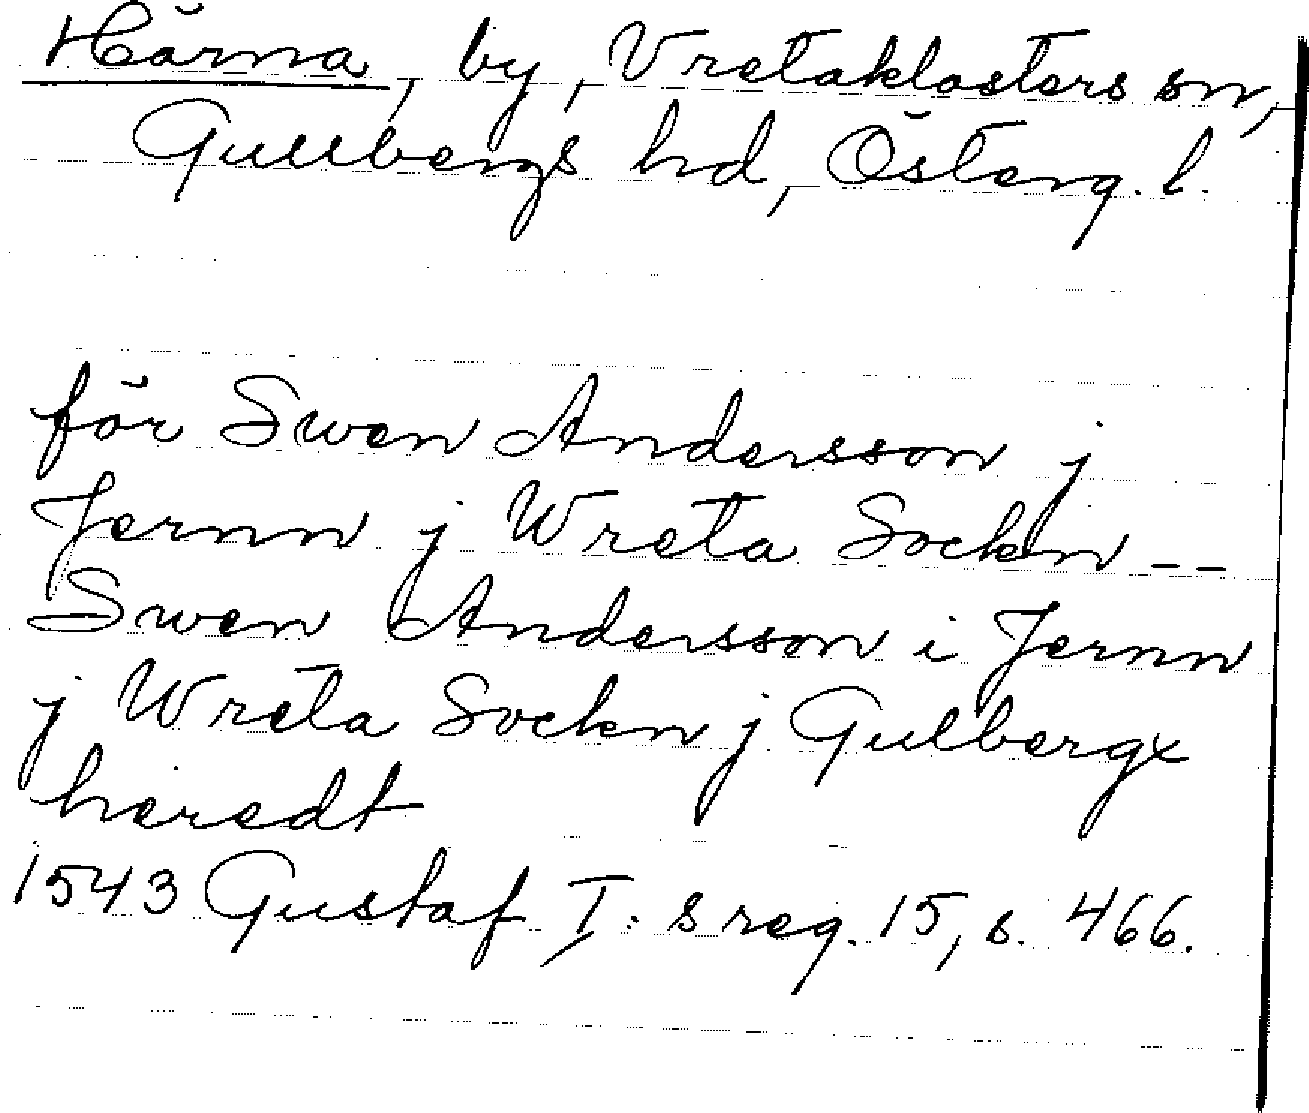 Härna, by, Vretaklosters sn,
Gullbergs hd, Österg. l.
för Swen Andersson j
Jernn j Wreta Sockn --
Swen Andersson i Jernn
j Wreta Sockn j Gulbergx
heredt
1543 Gustaf I:s reg. 15, s. 466.